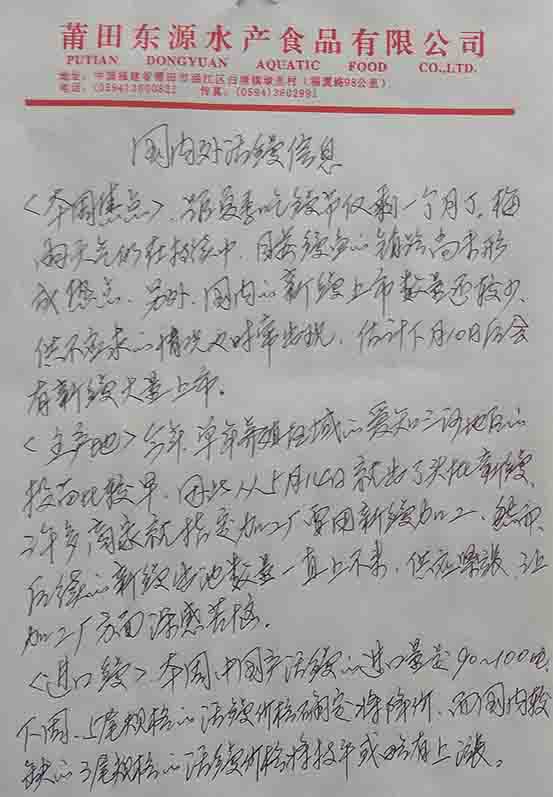 莆田东源水产食品有限公司
PUTIAN DONGYUAN AQUATIC FOOD CO.,LTD.
地址：中国福建省莆田市涵江区白塘镇埭里村（福厦路98公里）
电话：(0594)3600833 传真：(0594)3602991
国内外活鳗信息
<本周焦点>、距夏季吃鳗节仅剩一个月了，梅
雨天气仍在持续中，目前鳗鱼的销路尚未形
成热点。另外，国内的新鳗上市数量还较少，
供不应求的情况也时常出现，估计下月10日后会
有新鳗大量上市。
<主产地>今年，单年养殖区域的爱知三河地区的
投苗比较早，因此从5月14日就出了头批新鳗，
许多商家就指定加工厂要用新鳗加工、然而、
后续的新鳗出池数量一直上不来，供应紧张，让
加工厂方面深感苦恼。
<进口鳗>本周，中国产活鳗的进口量是90~100吨，
下周、上尾规格的活鳗价格确定将降价、而国内较
缺的3尾规格的活鳗价格将持平或略有上涨。